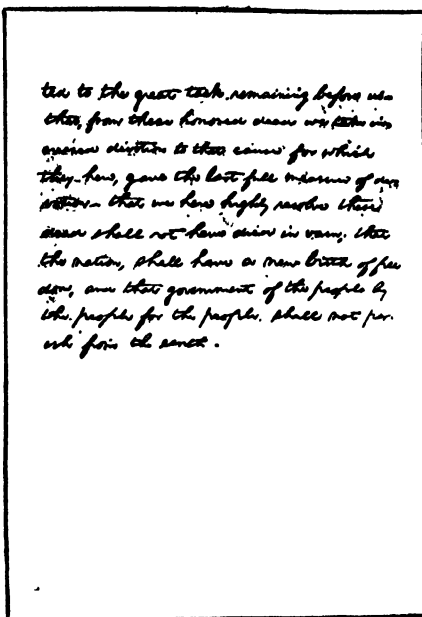 ted to the great task remaining before us—
that, from these honored dead we take in-
creased devotion to that cause for which
they here, gave the last full measure of dev
otion— that we here highly resolve these
dead shall not have died in vain; that
the nation, shall have a new birth of free
dom, and that government of the people by
the people for the people, shall not per-
ish from the earth.